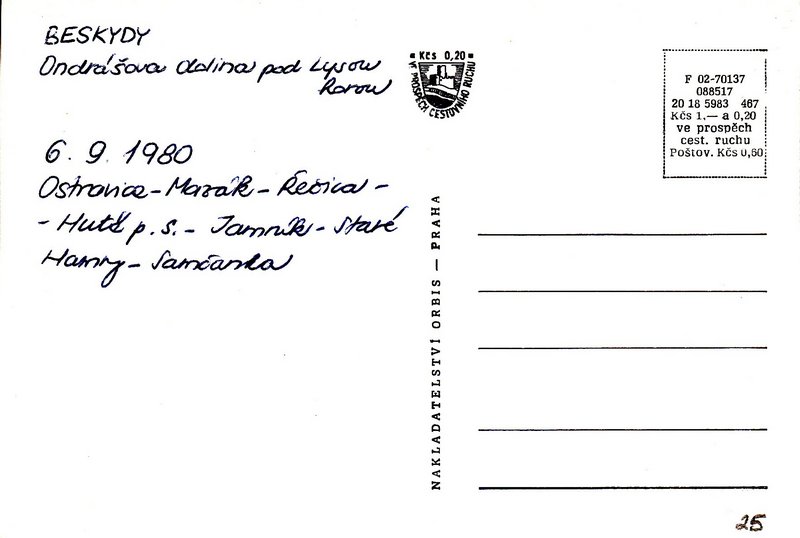 BESKYDY
Ondrášova dolina pod Lysou
horou
6. 9. 1980
Ostravice - Mazák - Řečica -
- Hutě p. s. - Jamník - Staré
Hamry - Samčanka
Kčs 0,20
VE PROSPĚCH CESTOVNÍHO RUCHU
F 02-70137
088517
20 18 5983 467
Kčs 1,— a 0,20
ve prospěch
cest. ruchu
Poštov. Kčs 0,60
NAKLADATELSTVÍ ORBIS — PRAHA
25